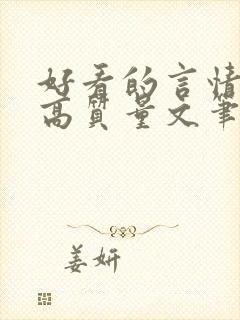 好看的言情
高质量文笔
姜妍